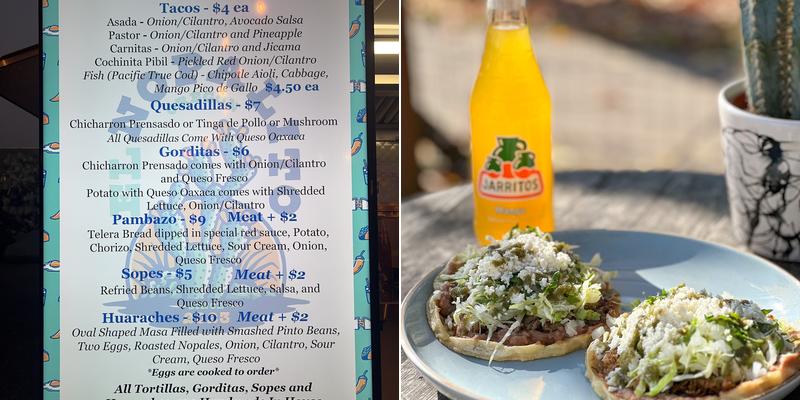 Tacos - $4 ea
Asada - Onion/Cilantro, Avocado Salsa
Pastor - Onion/Cilantro and Pineapple
Carnitas - Onion/Cilantro and Jicama
Cochinita Pibil - Pickled Red Onion/Cilantro
Fish (Pacific True Cod) - Chipotle Aioli, Cabbage,
Mango Pico de Gallo $4.50 ea
Quesadillas - $7
Chicharron Prensasdo or Tinga de Pollo or Mushroom
All Quesadillas Come With Queso Oaxaca
Gorditas - $6
Chicharron Prensado comes with Onion/Cilantro
and Queso Fresco
Potato with Queso Oaxaca comes with Shredded
Lettuce, Onion/Cilantro
Pambazo - $9 Meat + $2
Telera Bread dipped in special red sauce, Potato,
Chorizo, Shredded Lettuce, Sour Cream, Onion,
Queso Fresco
Sopes - $5 Meat + $2
Refried Beans, Shredded Lettuce, Salsa, and
Queso Fresco
Huaraches - $10 Meat + $2
Oval Shaped Masa Filled with Smashed Pinto Beans,
Two Eggs, Roasted Nopales, Onion, Cilantro, Sour
Cream, Queso Fresco
*Eggs are cooked to order*
All Tortillas, Gorditas, Sopes and
JARRITOS